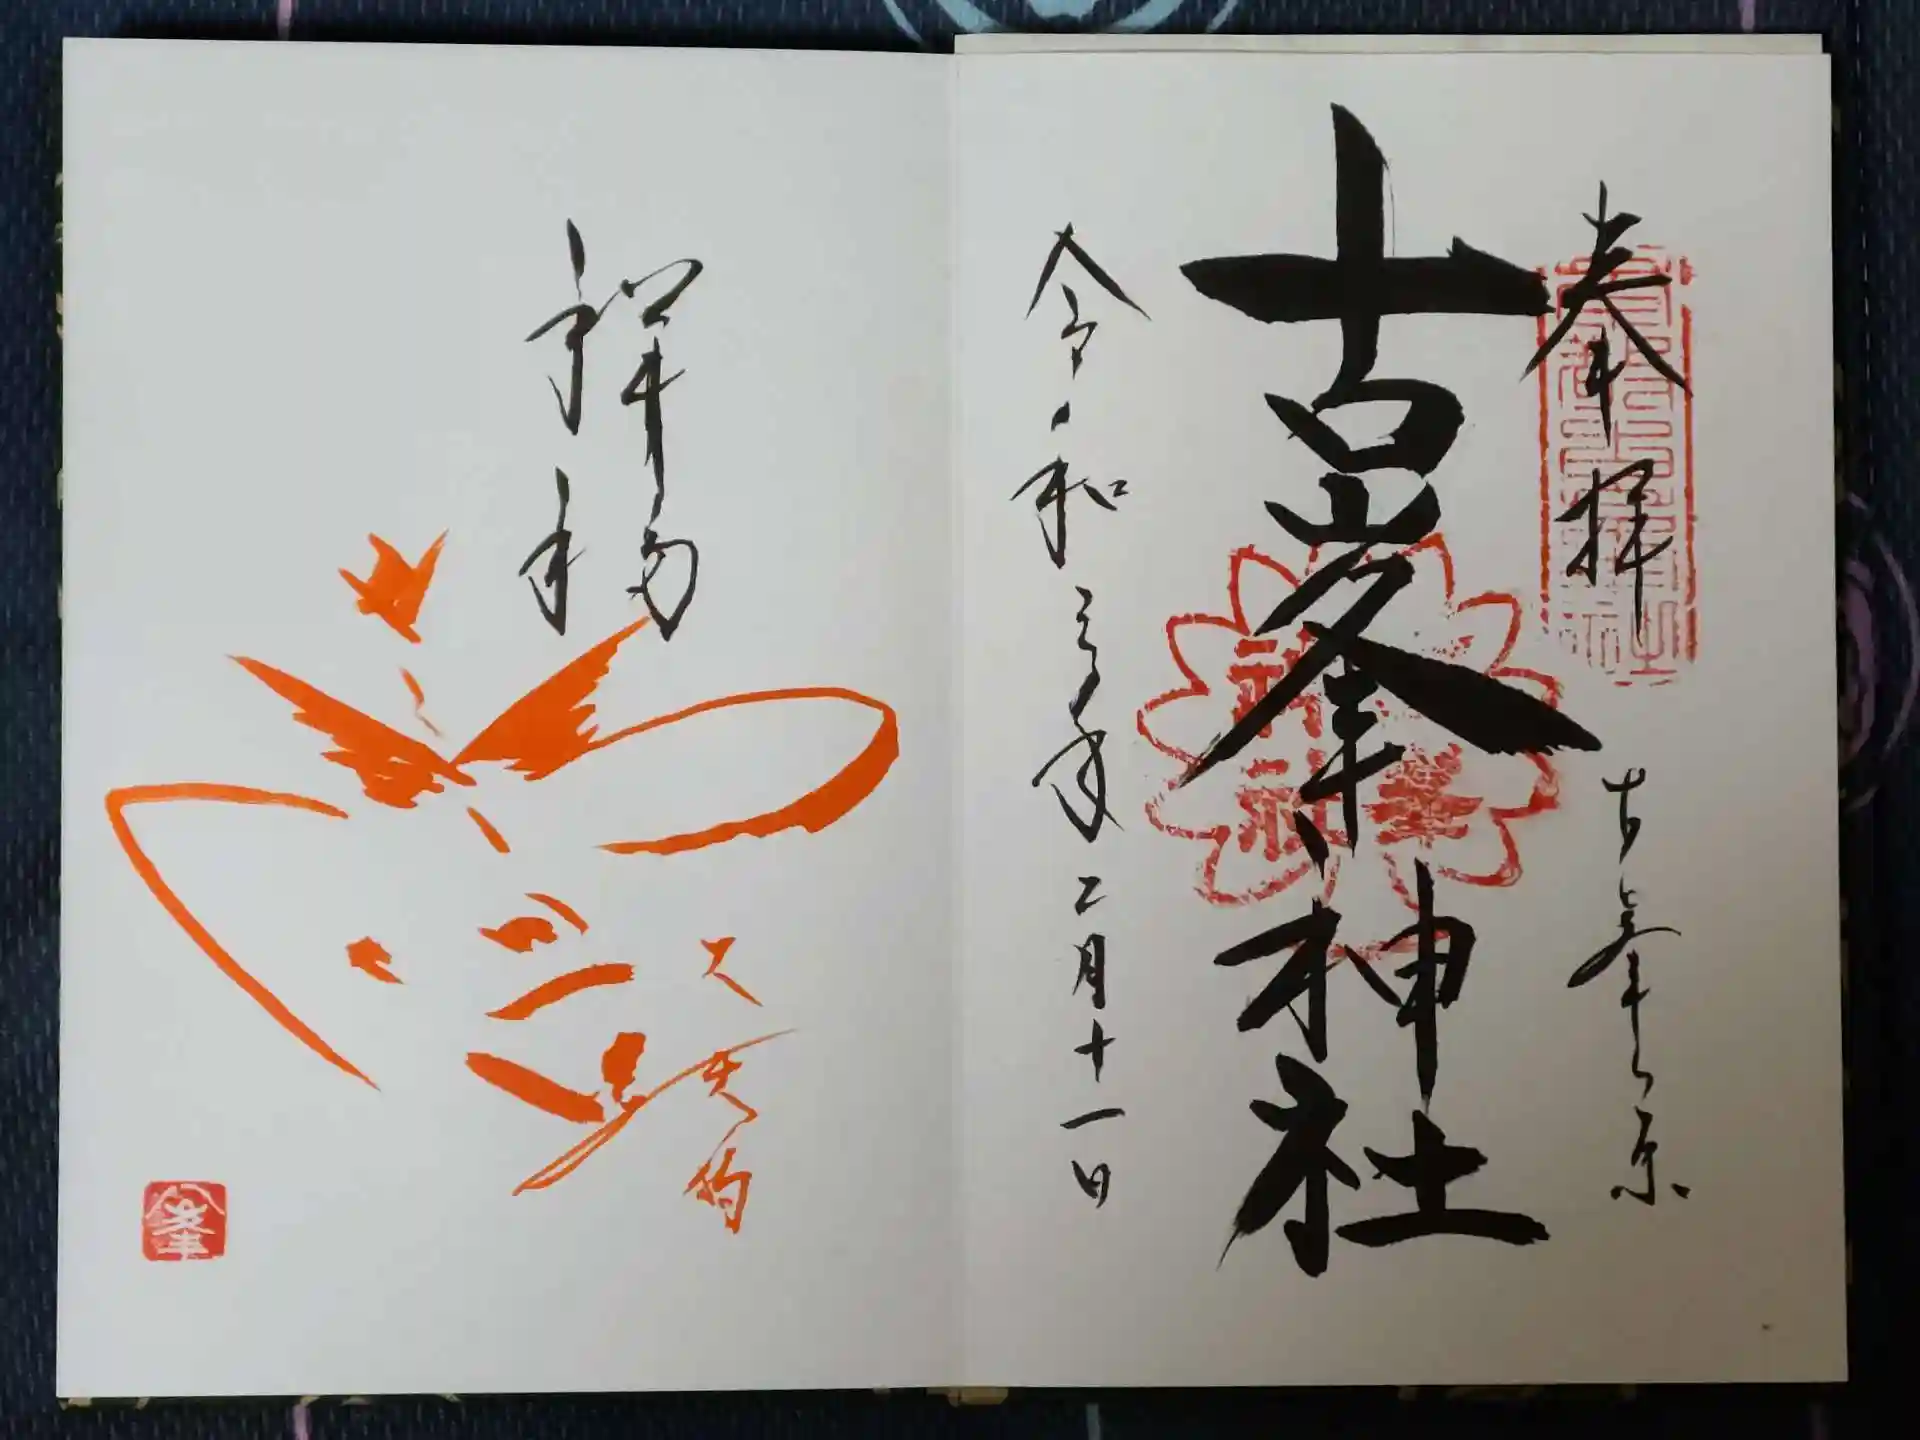 奉拝
古峯ヶ原
古峯神社
令和三年二月十一日
祥福
大天狗
峯